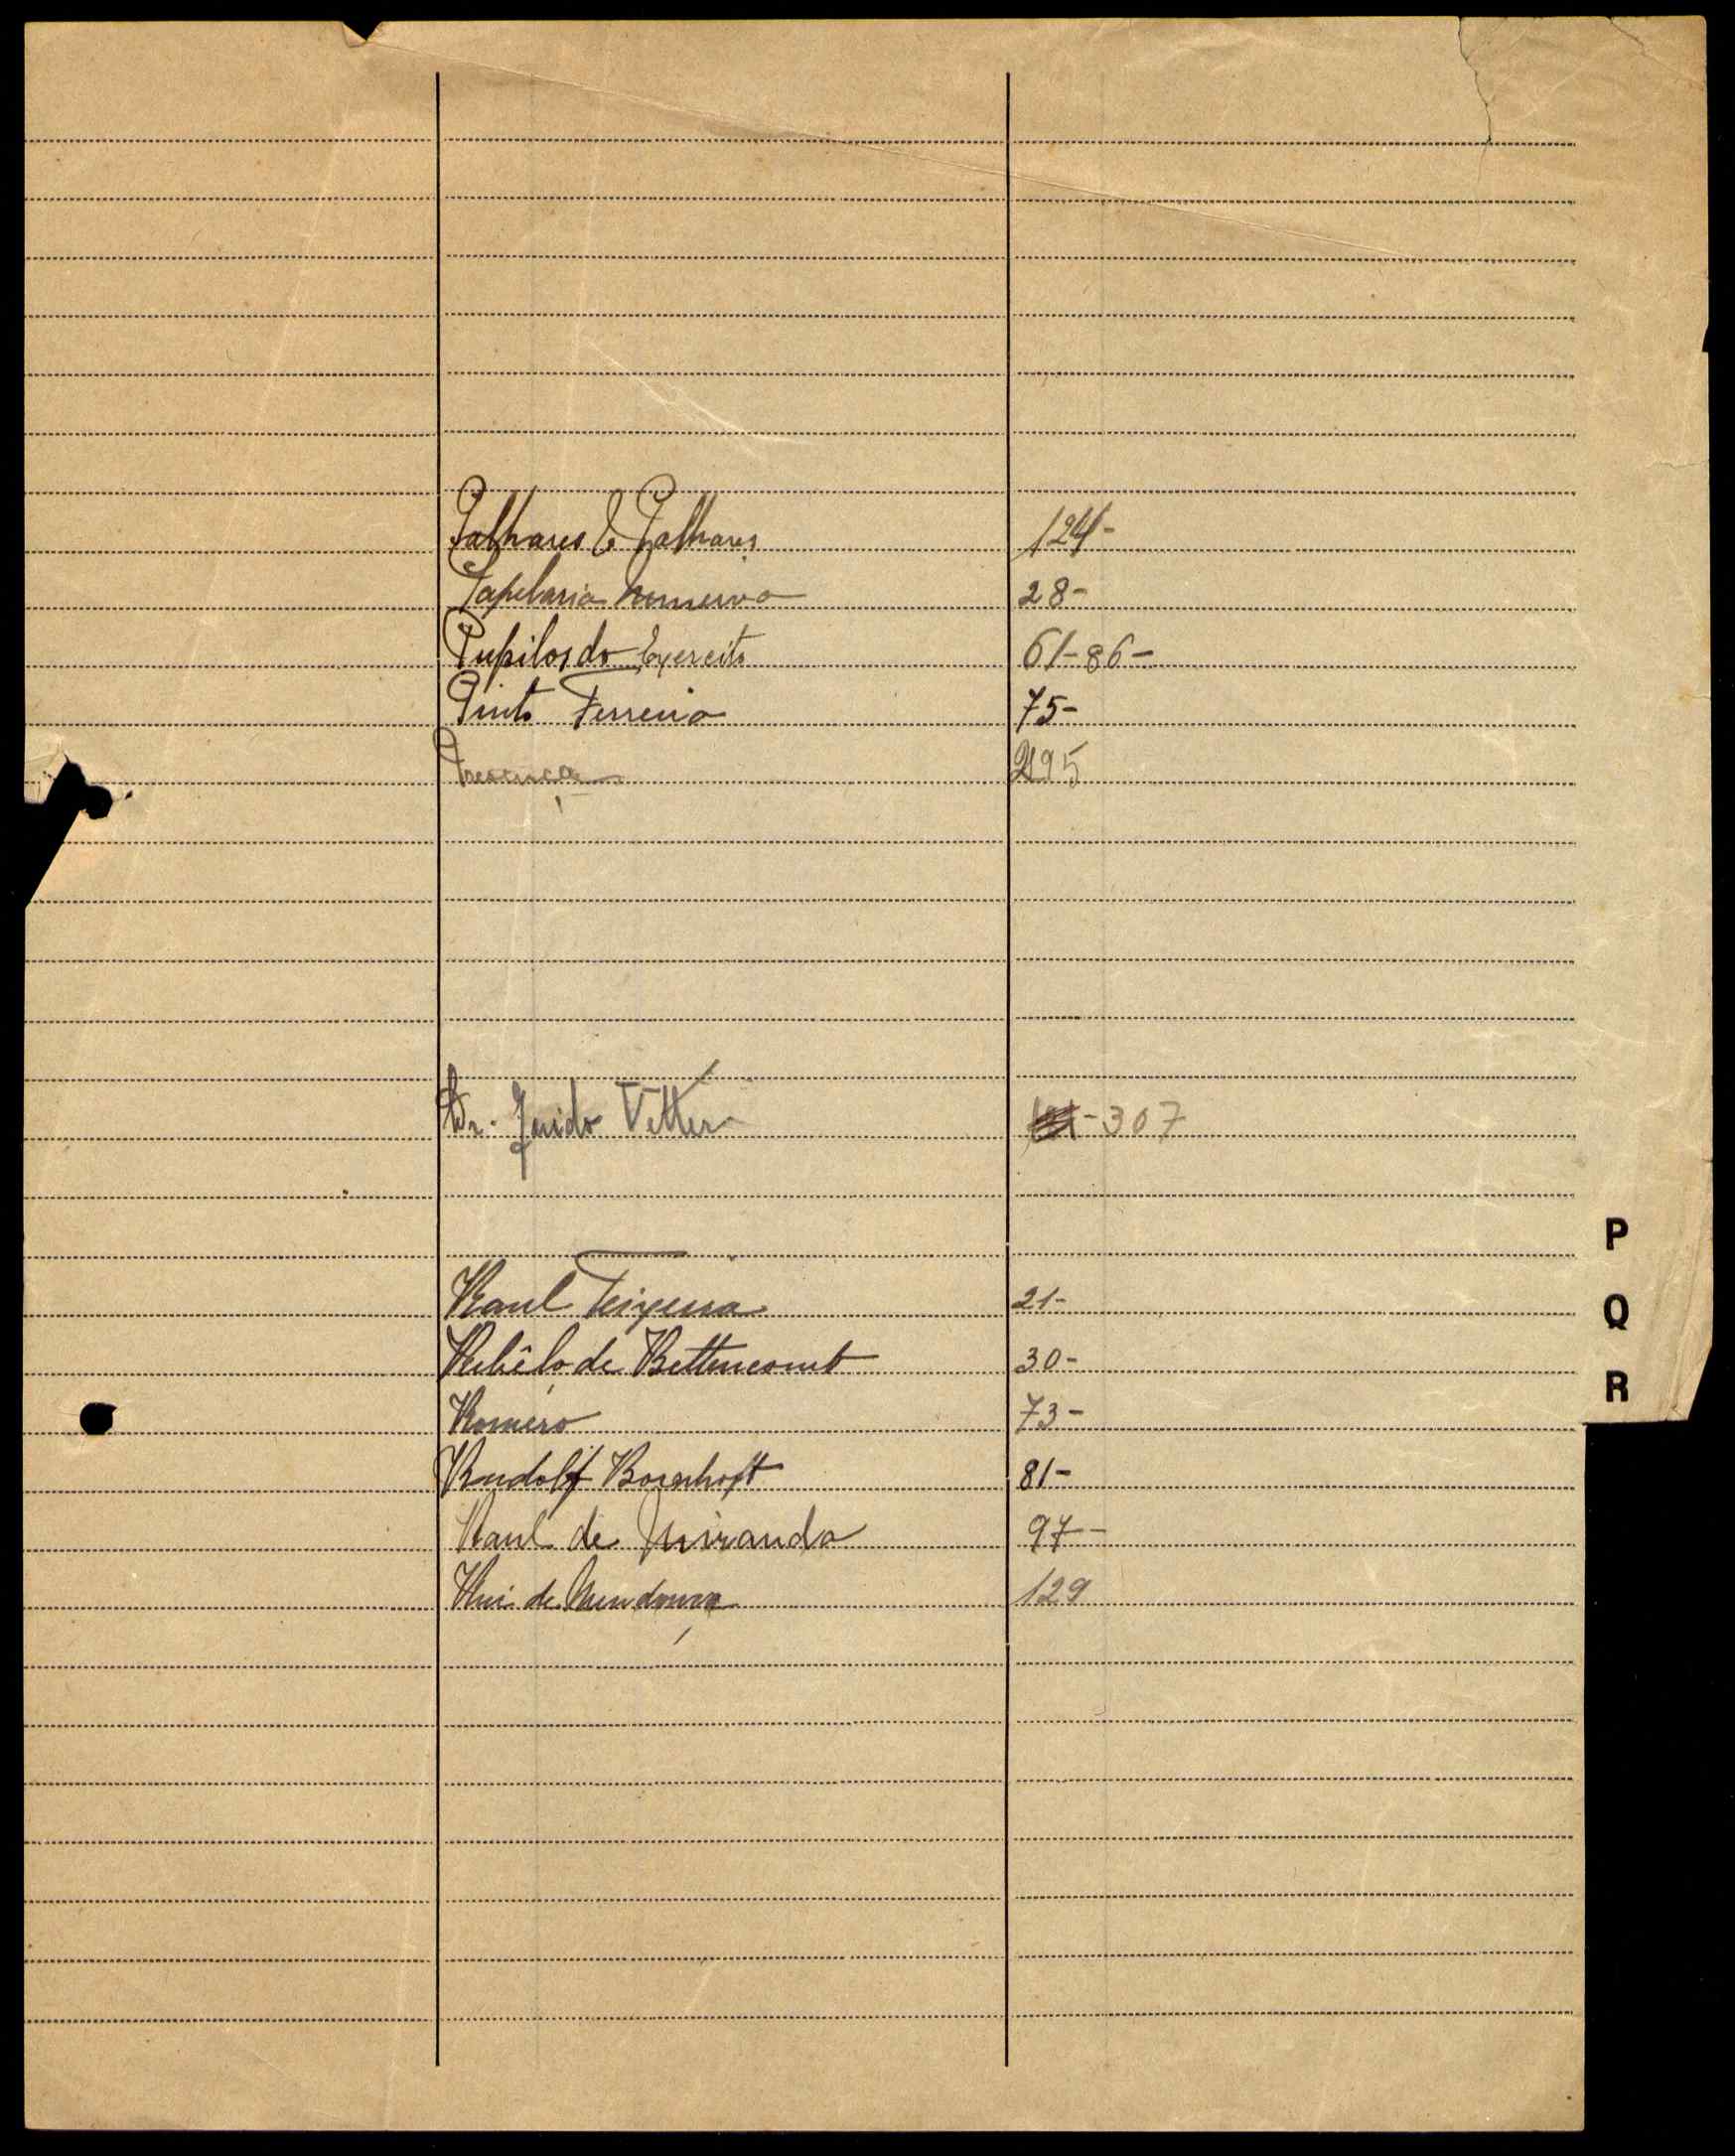 Palhares & Palhares 124-
Papelaria Minerva 28-
Pupilos do Exercito 61-86-
Pinto Ferreira 75-
Presença 295
Dr. Guido Vetter -307
Raul Teixeira 21-
Rebêlo de Bettencourt 30-
Romero 73-
Rudolf 81-
Raul de Miranda 97-
Rui de Mendonça 129
P
Q
R